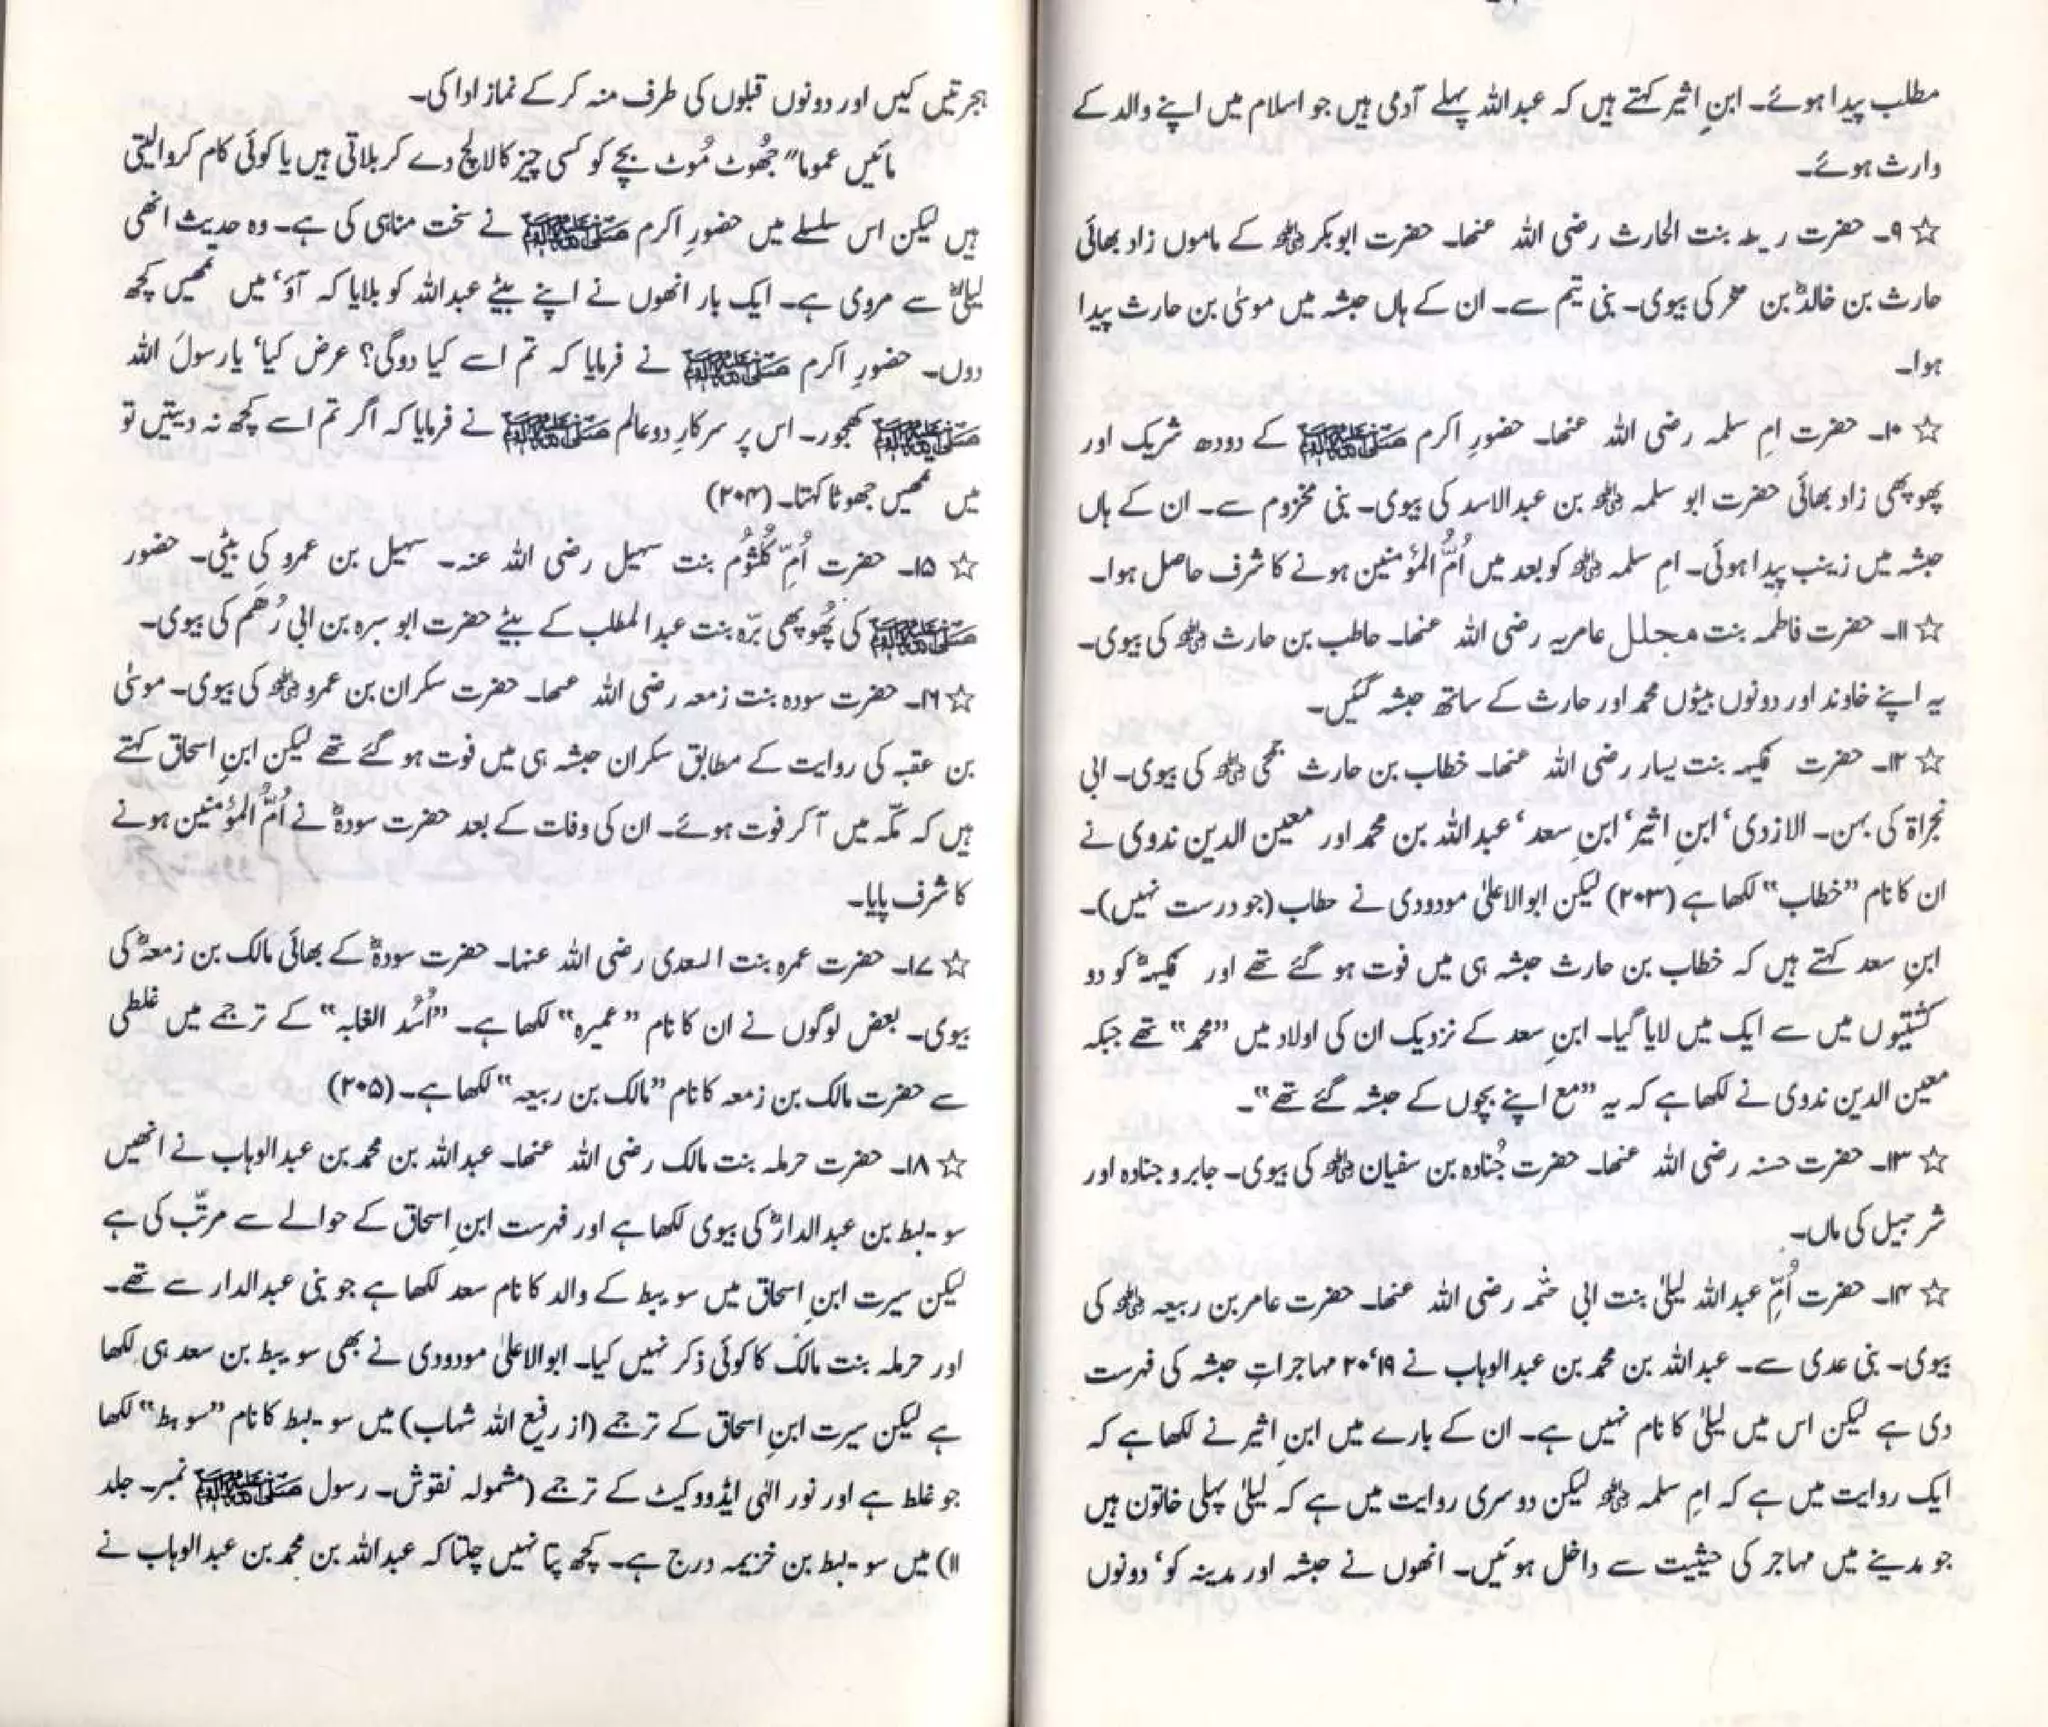 مطلب پیدا ہوئے۔ ابنِ اثیر کہتے ہیں کہ عبداللہ پہلے آدمی ہیں جو اسلام میں اپنے والد کے
وارث ہوئے۔
☆ ۹۔ حضرت ریطہ بنت الحارث رضی اللہ عنھا۔ حضرت ابوبکرؓ کے ماموں زاد بھائی
حارث بن خالدؓ بن صخر کی بیوی۔ بنی تیم سے۔ ان کے ہاں حبشہ میں موسیٰ بن حارث پیدا
ہوا۔
☆ ۱۰۔ حضرت امِ سلمہ رضی اللہ عنھا۔ حضورِ اکرم ﷺ کے دودھ شریک اور
پھوپھی زاد بھائی حضرت ابو سلمہؓ بن عبدالاسد کی بیوی۔ بنی مخزوم سے۔ ان کے ہاں
حبشہ میں زینب پیدا ہوئی۔ امِ سلمہؓ کو بعد میں اُمُّ المؤمنین ہونے کا شرف حاصل ہوا۔
☆ ۱۱۔ حضرت فاطمہ بنت مجلل عامریہ رضی اللہ عنھا۔ حاطب بن حارثؓ کی بیوی۔
یہ اپنے خاوند اور دونوں بیٹوں محمد اور حارث کے ساتھ حبشہ گئیں۔
☆ ۱۲۔ حضرت فکیہہ بنت یسار رضی اللہ عنھا۔ خطاب بن حارث جمحیؓ کی بیوی۔ ابی
نجراۃ کی بہن۔ الازدی‘ ابنِ اثیر‘ ابنِ سعد‘ عبداللہ بن محمد اور معین الدین ندوی نے
ان کا نام ”خطاب“ لکھا ہے (۲۰۳) لیکن ابوالاعلیٰ مودودی نے حطاب (جو درست نہیں)۔
ابنِ سعد کہتے ہیں کہ خطاب بن حارث حبشہ ہی میں فوت ہو گئے تھے اور فکیہہؓ کو دو
کشتیوں میں سے ایک میں لایا گیا۔ ابنِ سعد کے نزدیک ان کی اولاد میں ”محمد“ تھے جبکہ
معین الدین ندوی نے لکھا ہے کہ یہ ”مع اپنے بچوں کے حبشہ گئے تھے“۔
☆ ۱۳۔ حضرت حسنہ رضی اللہ عنھا۔ حضرت جُنادہ بن سفیانؓ کی بیوی۔ جابر و جنادہ اور
شرجیل کی ماں۔
☆ ۱۴۔ حضرت اُمِّ عبداللہ لیلیٰ بنت ابی حثمہ رضی اللہ عنھا۔ حضرت عامر بن ربیعہؓ کی
بیوی۔ بنی عدی سے۔ عبداللہ بن محمد بن عبدالوہاب نے ۱۹‘۲۰ مہاجراتِ حبشہ کی فہرست
دی ہے لیکن اس میں لیلیٰ کا نام نہیں ہے۔ ان کے بارے میں ابنِ اثیر نے لکھا ہے کہ
ایک روایت میں ہے کہ امِ سلمہؓ لیکن دوسری روایت میں ہے کہ لیلیٰ پہلی خاتون ہیں
جو مدینے میں مہاجر کی حیثیت سے داخل ہوئیں۔ انھوں نے حبشہ اور مدینہ کو‘ دونوں
ہجرتیں کیں اور دونوں قبلوں کی طرف منہ کر کے نماز ادا کی۔
مائیں عموما" جھُوٹ مُوٹ بچے کو کسی چیز کا لالچ دے کر بلاتی ہیں یا کوئی کام کروالیتی
ہیں لیکن اس سلسلے میں حضورِ اکرم ﷺ نے سخت مناہی کی ہے۔ وہ حدیث انھی
لیلیٰؓ سے مروی ہے۔ ایک بار انھوں نے اپنے بیٹے عبداللہ کو بلایا کہ آؤ‘ میں تمھیں کچھ
دوں۔ حضورِ اکرم ﷺ نے فرمایا کہ تم اسے کیا دوگی؟ عرض کیا‘ یارسولَ اللہ
ﷺ کھجور۔ اس پر سرکارِ دوعالم ﷺ نے فرمایا کہ اگر تم اسے کچھ نہ دیتیں تو
میں تمھیں جھوٹا کہتا۔ (۲۰۴)
☆ ۱۵۔ حضرت اُمِّ کُلثُوم بنت سہیل رضی اللہ عنہ۔ سہیل بن عمرو کی بیٹی۔ حضور
ﷺ کی پھُوپھی برّہ بنت عبدالمطلب کے بیٹے حضرت ابو سبرہ بن ابی رُھَم کی بیوی۔
☆ ۱۶۔ حضرت سودہ بنت زمعہ رضی اللہ عنھا۔ حضرت سکران بن عمروؓ کی بیوی۔ موسیٰ
بن عقبہ کی روایت کے مطابق سکران حبشہ ہی میں فوت ہو گئے تھے لیکن ابنِ اسحاق کہتے
ہیں کہ مکّہ میں آ کر فوت ہوئے۔ ان کی وفات کے بعد حضرت سودہؓ نے اُمُّ المؤمنین ہونے
کا شرف پایا۔
☆ ۱۷۔ حضرت عمرہ بنت السعدی رضی اللہ عنہا۔ حضرت سودہؓ کے بھائی مالک بن زمعہؓ کی
بیوی۔ بعض لوگوں نے ان کا نام ”عمیرہ“ لکھا ہے۔ ”اُسُد الغابہ“ کے ترجمے میں غلطی
سے حضرت مالک بن زمعہ کا نام ”مالک بن ربیعہ“ لکھا ہے۔ (۲۰۵)
☆ ۱۸۔ حضرت حرملہ بنت مالک رضی اللہ عنھا۔ عبداللہ بن محمد بن عبدالوہاب نے انھیں
سویبط بن عبدالدارؓ کی بیوی لکھا ہے اور فہرست ابنِ اسحاق کے حوالے سے مرتّب کی ہے
لیکن سیرت ابنِ اسحاق میں سویبط کے والد کا نام سعد لکھا ہے جو بنی عبدالدار سے تھے۔
اور حرملہ بنت مالک کا کوئی ذکر نہیں کیا۔ ابوالاعلیٰ مودودی نے بھی سویبط بن سعد ہی لکھا
ہے لیکن سیرت ابنِ اسحاق کے ترجمے (از رفیع اللہ شہاب) میں سویبط کا نام ”سوبط“ لکھا
جو غلط ہے اور نور الٰہی ایڈووکیٹ کے ترجمے (مشمولہ نقوش۔ رسول ﷺ نمبر۔ جلد
۱۱) میں سویبط بن خزیمہ درج ہے۔ کچھ پتا نہیں چلتا کہ عبداللہ بن محمد بن عبدالوہاب نے